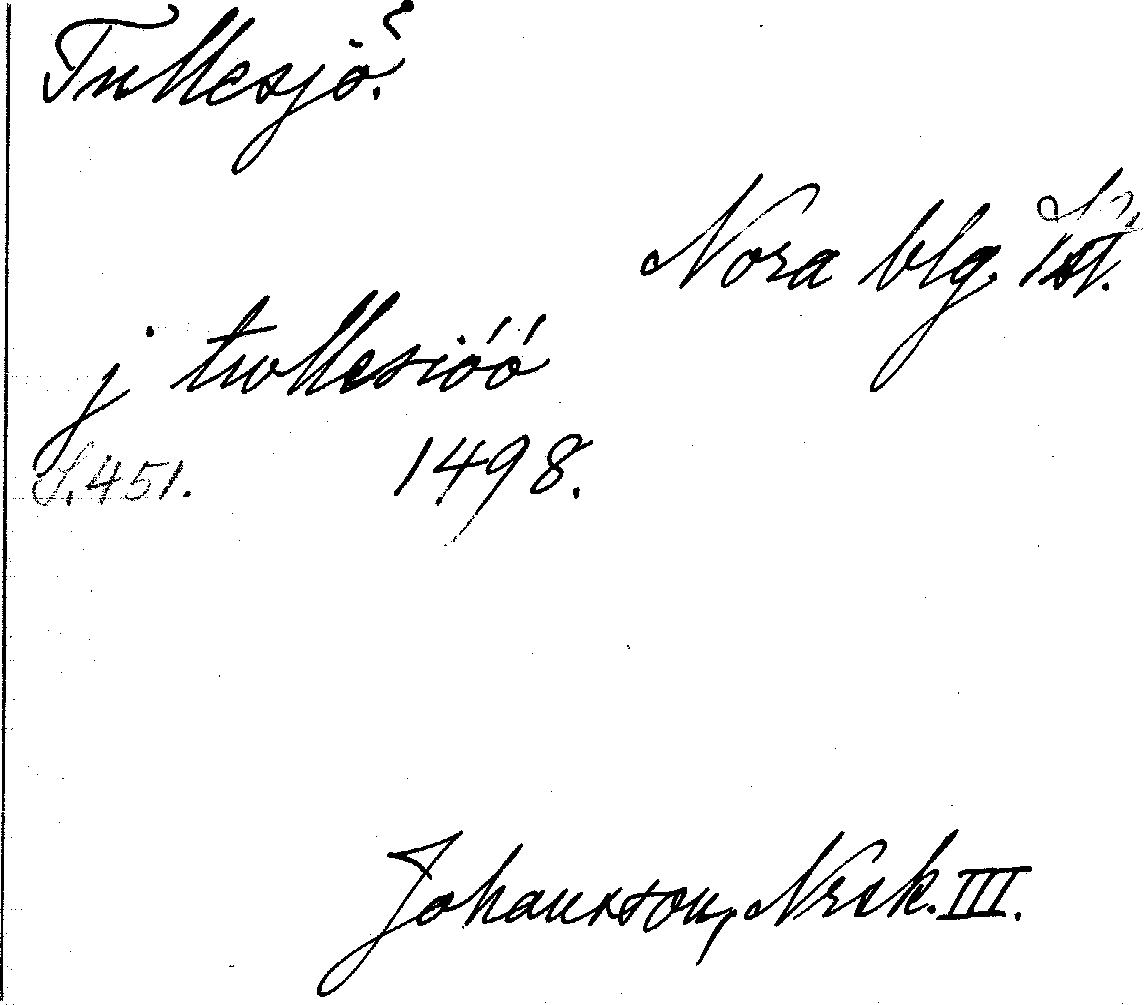 Tullesjö?
Nora blg.
j twllesióó
S. 451. 1498.
Johansson, Nrck. III.